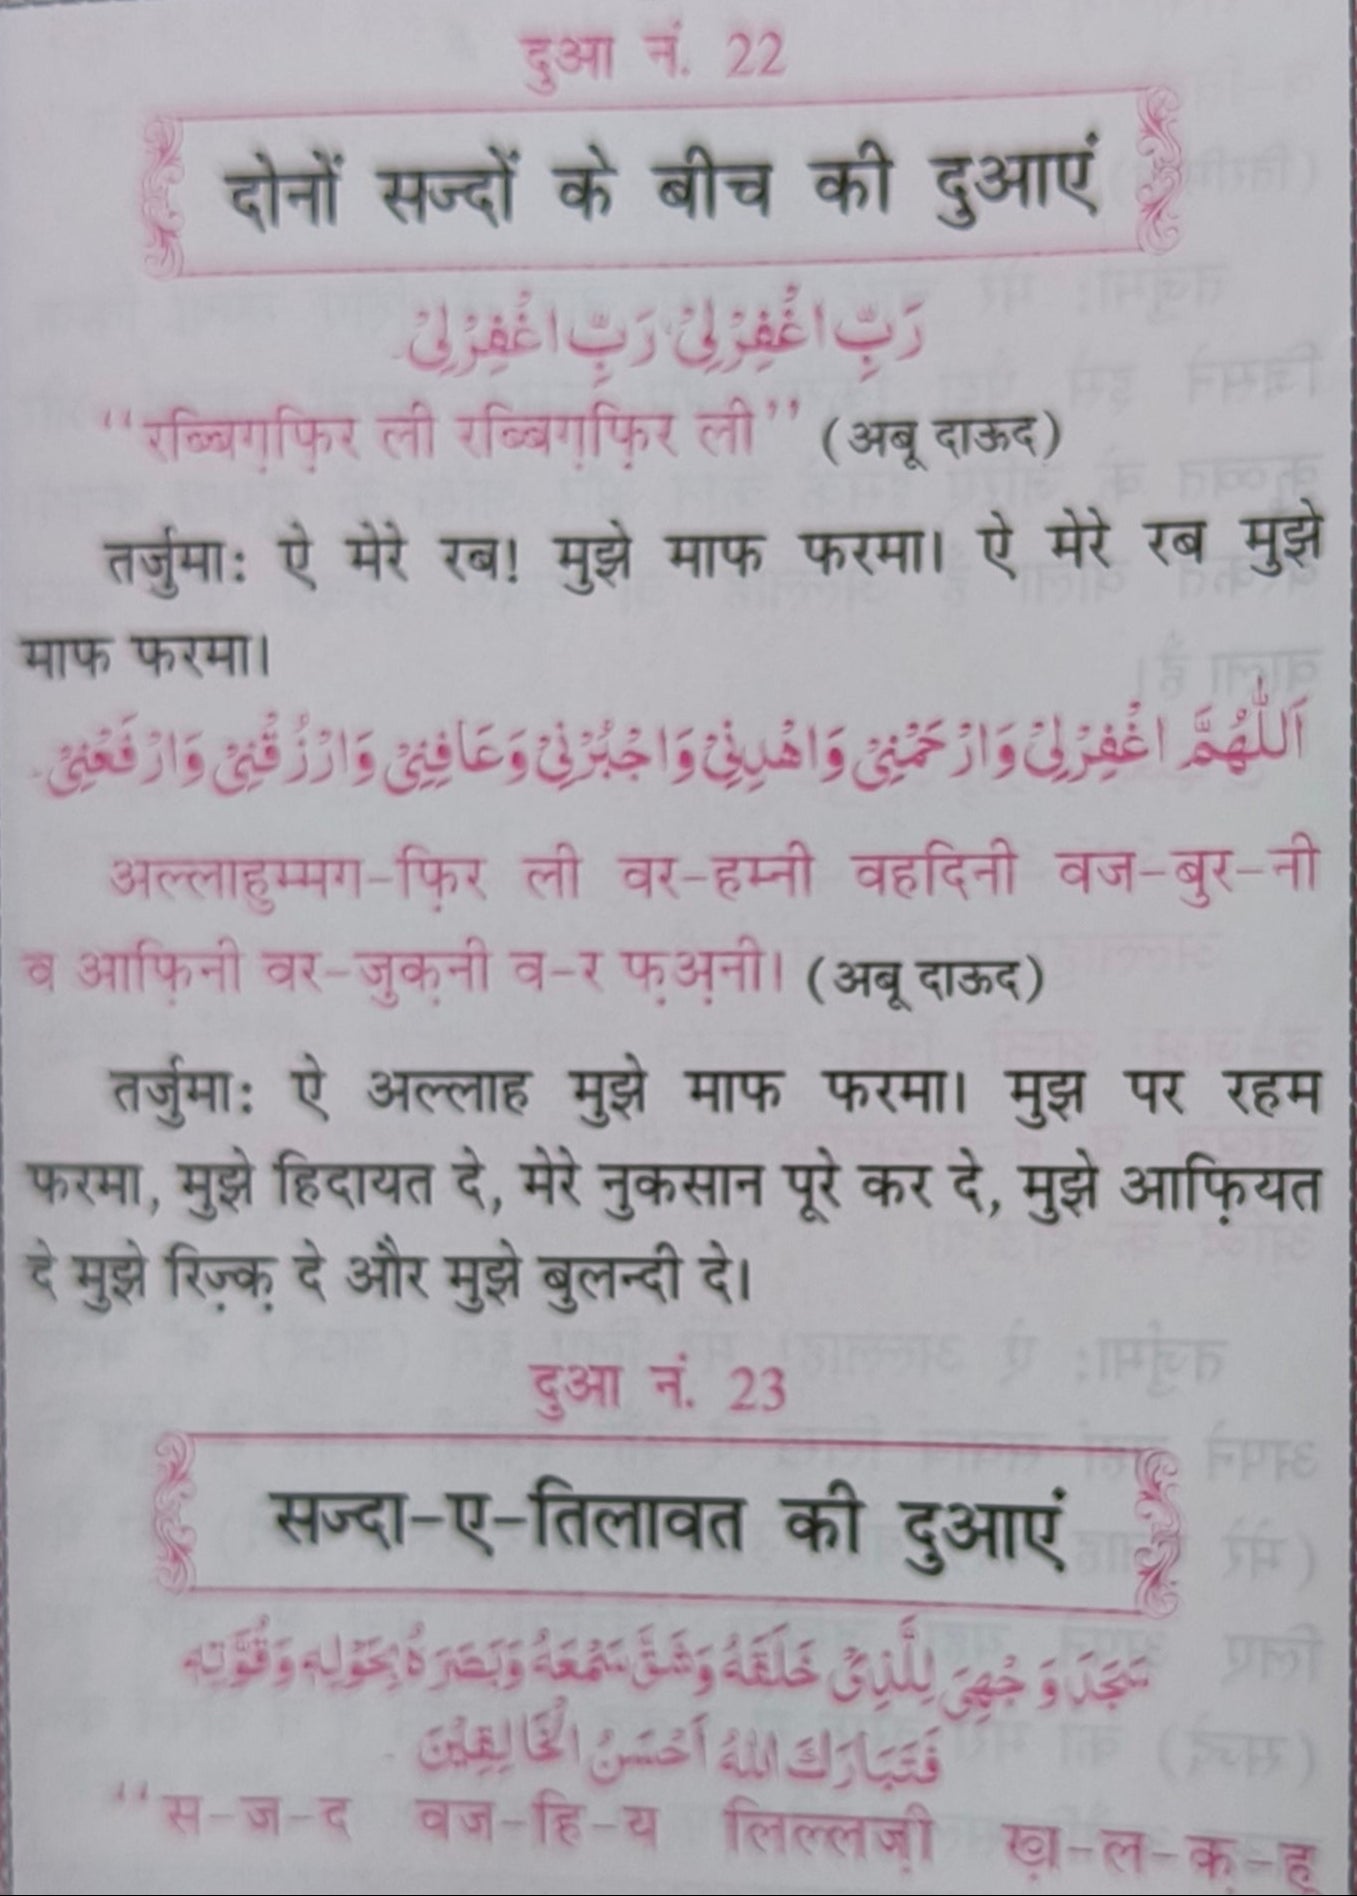 दुआ नं. 22
दोनों सज्दों के बीच की दुआएं
رَبِّ اغْفِرْ لِيْ رَبِّ اغْفِرْ لِيْ
“रब्बिग़फ़िर ली रब्बिग़फ़िर ली” (अबू दाऊद)
तर्जुमाः ऐ मेरे रब! मुझे माफ फरमा। ऐ मेरे रब मुझे
माफ फरमा।
اَللّٰهُمَّ اغْفِرْ لِيْ وَارْحَمْنِيْ وَاهْدِنِيْ وَاجْبُرْنِيْ وَعَافِنِيْ وَارْزُقْنِيْ وَارْفَعْنِيْ۔
अल्लाहुम्मग-फ़िर ली वर-हम्नी वहदिनी वज-बुर-नी
व आफ़िनी वर-जुक़नी व-र फ़अ़नी। (अबू दाऊद)
तर्जुमाः ऐ अल्लाह मुझे माफ फरमा। मुझ पर रहम
फरमा, मुझे हिदायत दे, मेरे नुकसान पूरे कर दे, मुझे आफ़ियत
दे मुझे रिज़्क़ दे और मुझे बुलन्दी दे।
दुआ नं. 23
सज्दा-ए-तिलावत की दुआएं
سَجَدَ وَجْهِيَ لِلَّذِيْ خَلَقَهُ وَشَقَّ سَمْعَهُ وَبَصَرَهُ بِحَوْلِهٖ وَقُوَّتِهٖ
فَتَبَارَكَ اللهُ اَحْسَنُ الْخَالِقِيْنَ
“स-ज-द वज-हि-य लिल्लज़ी ख़-ल-क़-हू